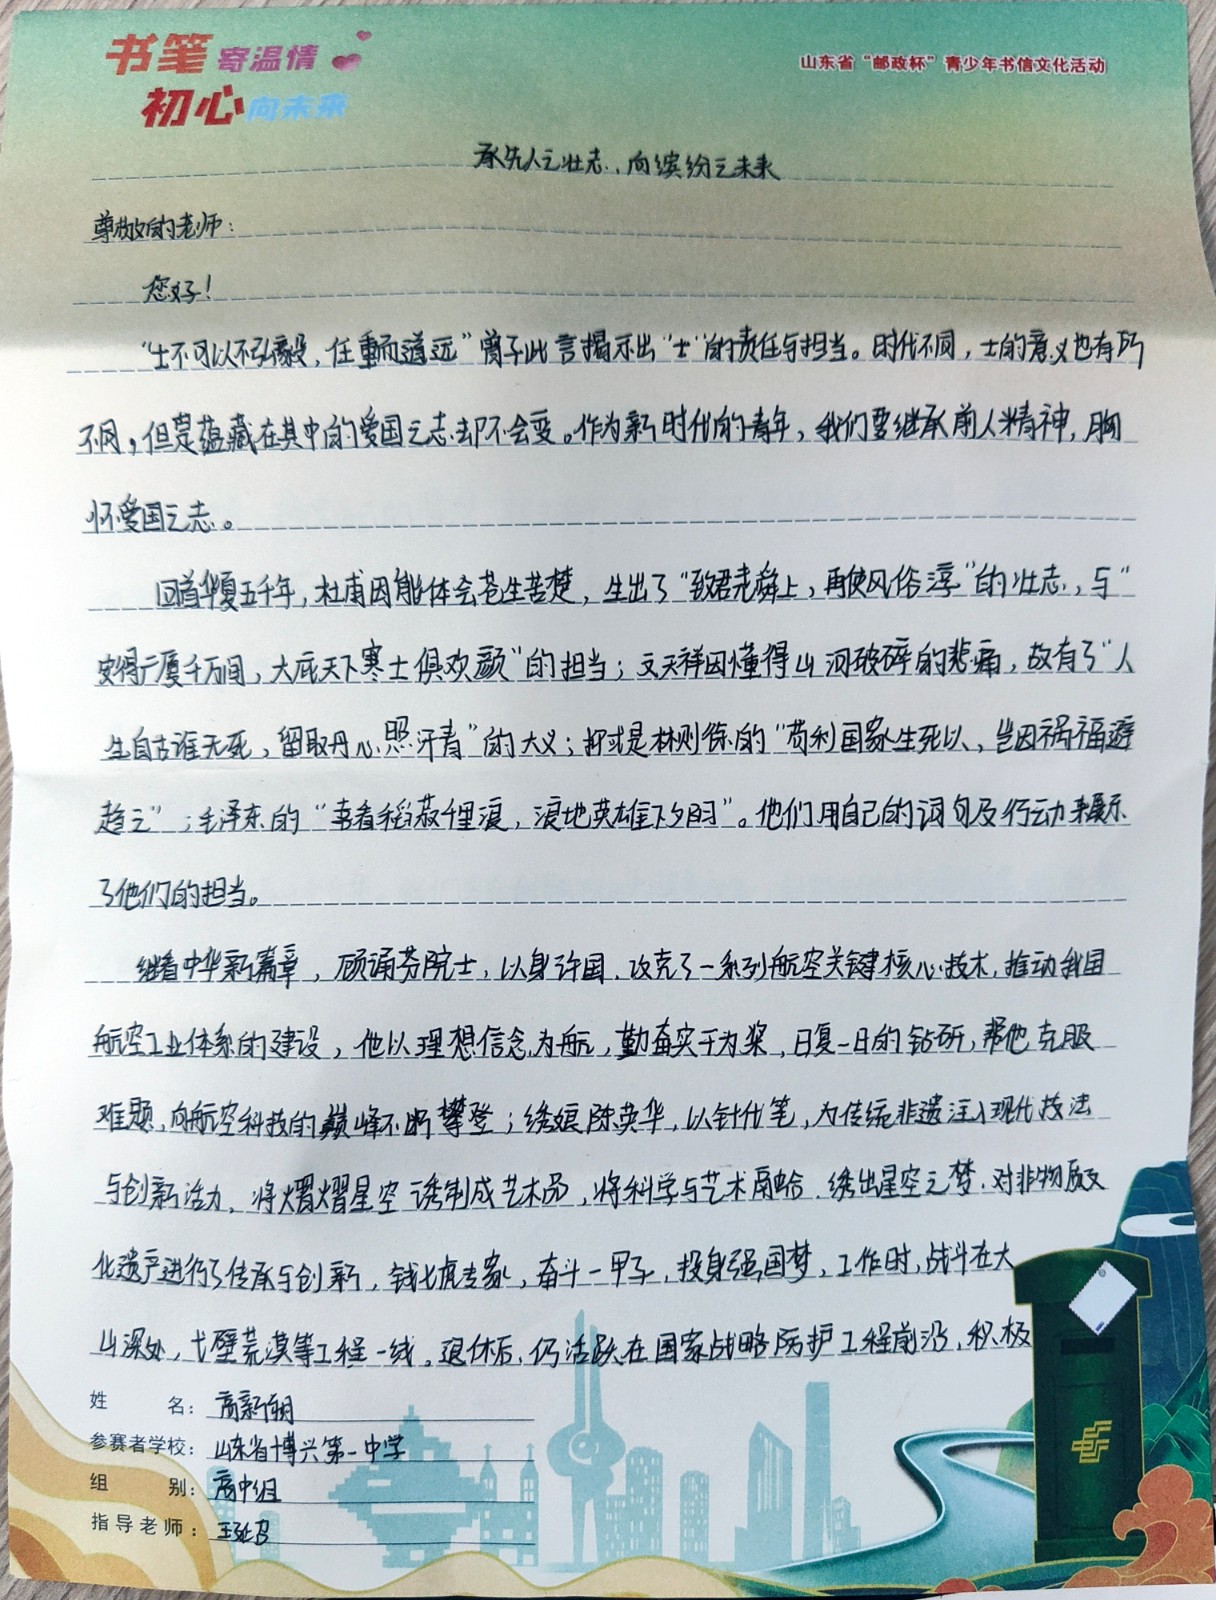 书笔寄温情
初心向未来
山东省“邮政杯”青少年书信文化活动
承先人之壮志,向缤纷之未来
尊敬的老师:
您好!
“士不可以不弘毅,任重而道远”曾子此言揭示出“士”的责任与担当。时代不同,士的意义也有所
不同,但是蕴藏在其中的爱国之志却不会变。作为新时代的青年,我们要继承前人精神,胸
怀爱国之志。
回首华夏五千年,杜甫因能体会苍生苦楚,生出了“致君尧舜上,再使风俗淳”的壮志,与“
安得广厦千万间,大庇天下寒士俱欢颜”的担当;文天祥因懂得山河破碎的悲痛,故有了“人
生自古谁无死,留取丹心照汗青”的大义;抑或是林则徐的“苟利国家生死以,岂因祸福避
趋之”;毛泽东的“喜看稻菽千里浪,浪地英雄下夕阳”。他们用自己的词句及行动来展示
了他们的担当。
继看中华新篇章,顾诵芬院士,以身许国,攻克了一系列航空关键核心技术,推动我国
航空工业体系的建设,他以理想信念为航,勤奋实干为桨,日复一日的钻研,帮他克服
难题,向航空科技的巅峰不断攀登;绣娘陈英华,以针代笔,为传统非遗注入现代技法
与创新活力,将熠熠星空诱制成艺术品,将科学与艺术融合,绣出星空之梦,对非物质文
化遗产进行了传承与创新,钱七虎专家,奋斗一甲子,投身强国梦,工作时,战斗在大
山深处,戈壁荒漠等工程一线。退休后,仍活跃在国家战略防护工程前沿,积极
姓名:高新朝
参赛者学校:山东省博兴第一中学
组别:高中组
指导老师:王